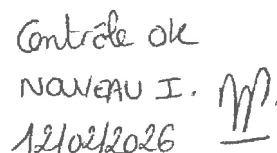 Contrôle ok
NOUVEAU I.
12/02/2026